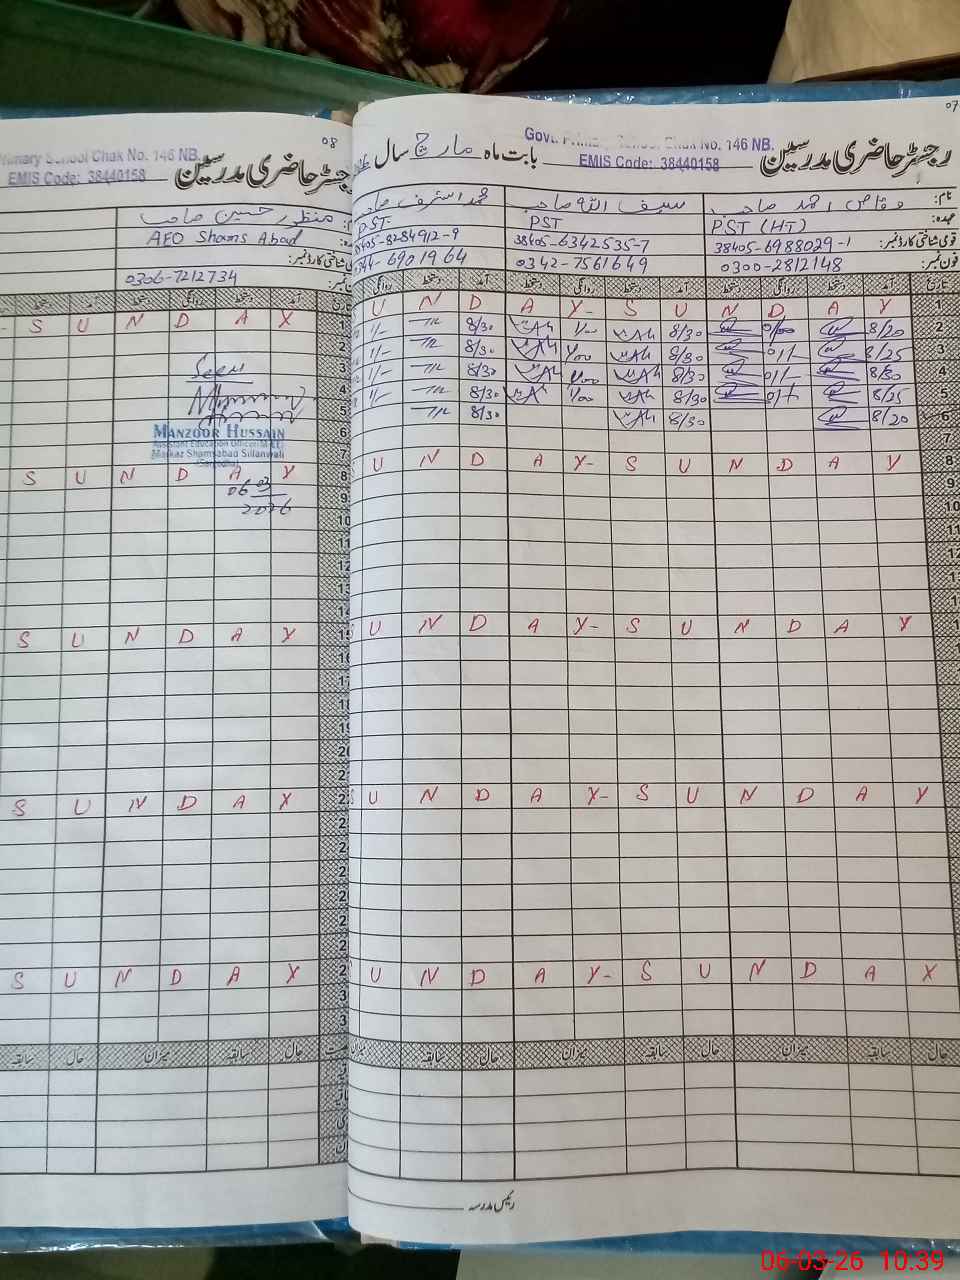 07
Govt. Primary School Chak No. 146 NB.
EMIS Code: 38440158
رجسٹر حاضری مدرسین بابت ماہ مارچ سال
نام: وقاص احمد صاحب سیف اللہ صاحب محمد اشرف صاحب
عہدہ: PST (HT) PST PST
قومی شناختی کارڈ نمبر: 38405-6988029-1 38405-6342535-7 38405-8284912-9
فون نمبر: 0300-2812148 0342-7561649 0344-6901964
تاریخ آمد دستخط روانگی دستخط آمد دستخط روانگی دستخط آمد دستخط روانگی
U N D A Y - S U N D A Y
2 8/20 8/30 8/30
3 8/25 8/30 8/30
4 8/30 8/30 8/30
5 8/25 8/30 8/30
6 8/20 8/30 8/30
7
8 U N D A Y - S U N D A Y
9
10
11
12
13
U N D A Y - S U N D A Y
U N D A Y - S U N D A Y
U N D A Y - S U N D A Y
حال سابقہ میزان حال سابقہ میزان حال سابقہ میزان
رئیس مدرسہ
08
Primary School Chak No. 146 NB.
EMIS Code: 38440158
رجسٹر حاضری مدرسین
منظور حسین صاحب
AEO Shams Abad
0306-7212734
آمد دستخط روانگی دستخط آمد دستخط
1 S U N D A Y
2
3 Seen
4
5
6 MANZOOR HUSSAIN
Assistant Education Officer (M-EE)
7 Markaz Shamsabad Sillanwali
(Sargodha)
8 S U N D A Y
9 06 03
10 2026
11
12
13
14
15 S U N D A Y
16
17
18
19
20
S U N D A Y
S U N D A Y
حال سابقہ میزان حال سابقہ
06-03-26 10.39